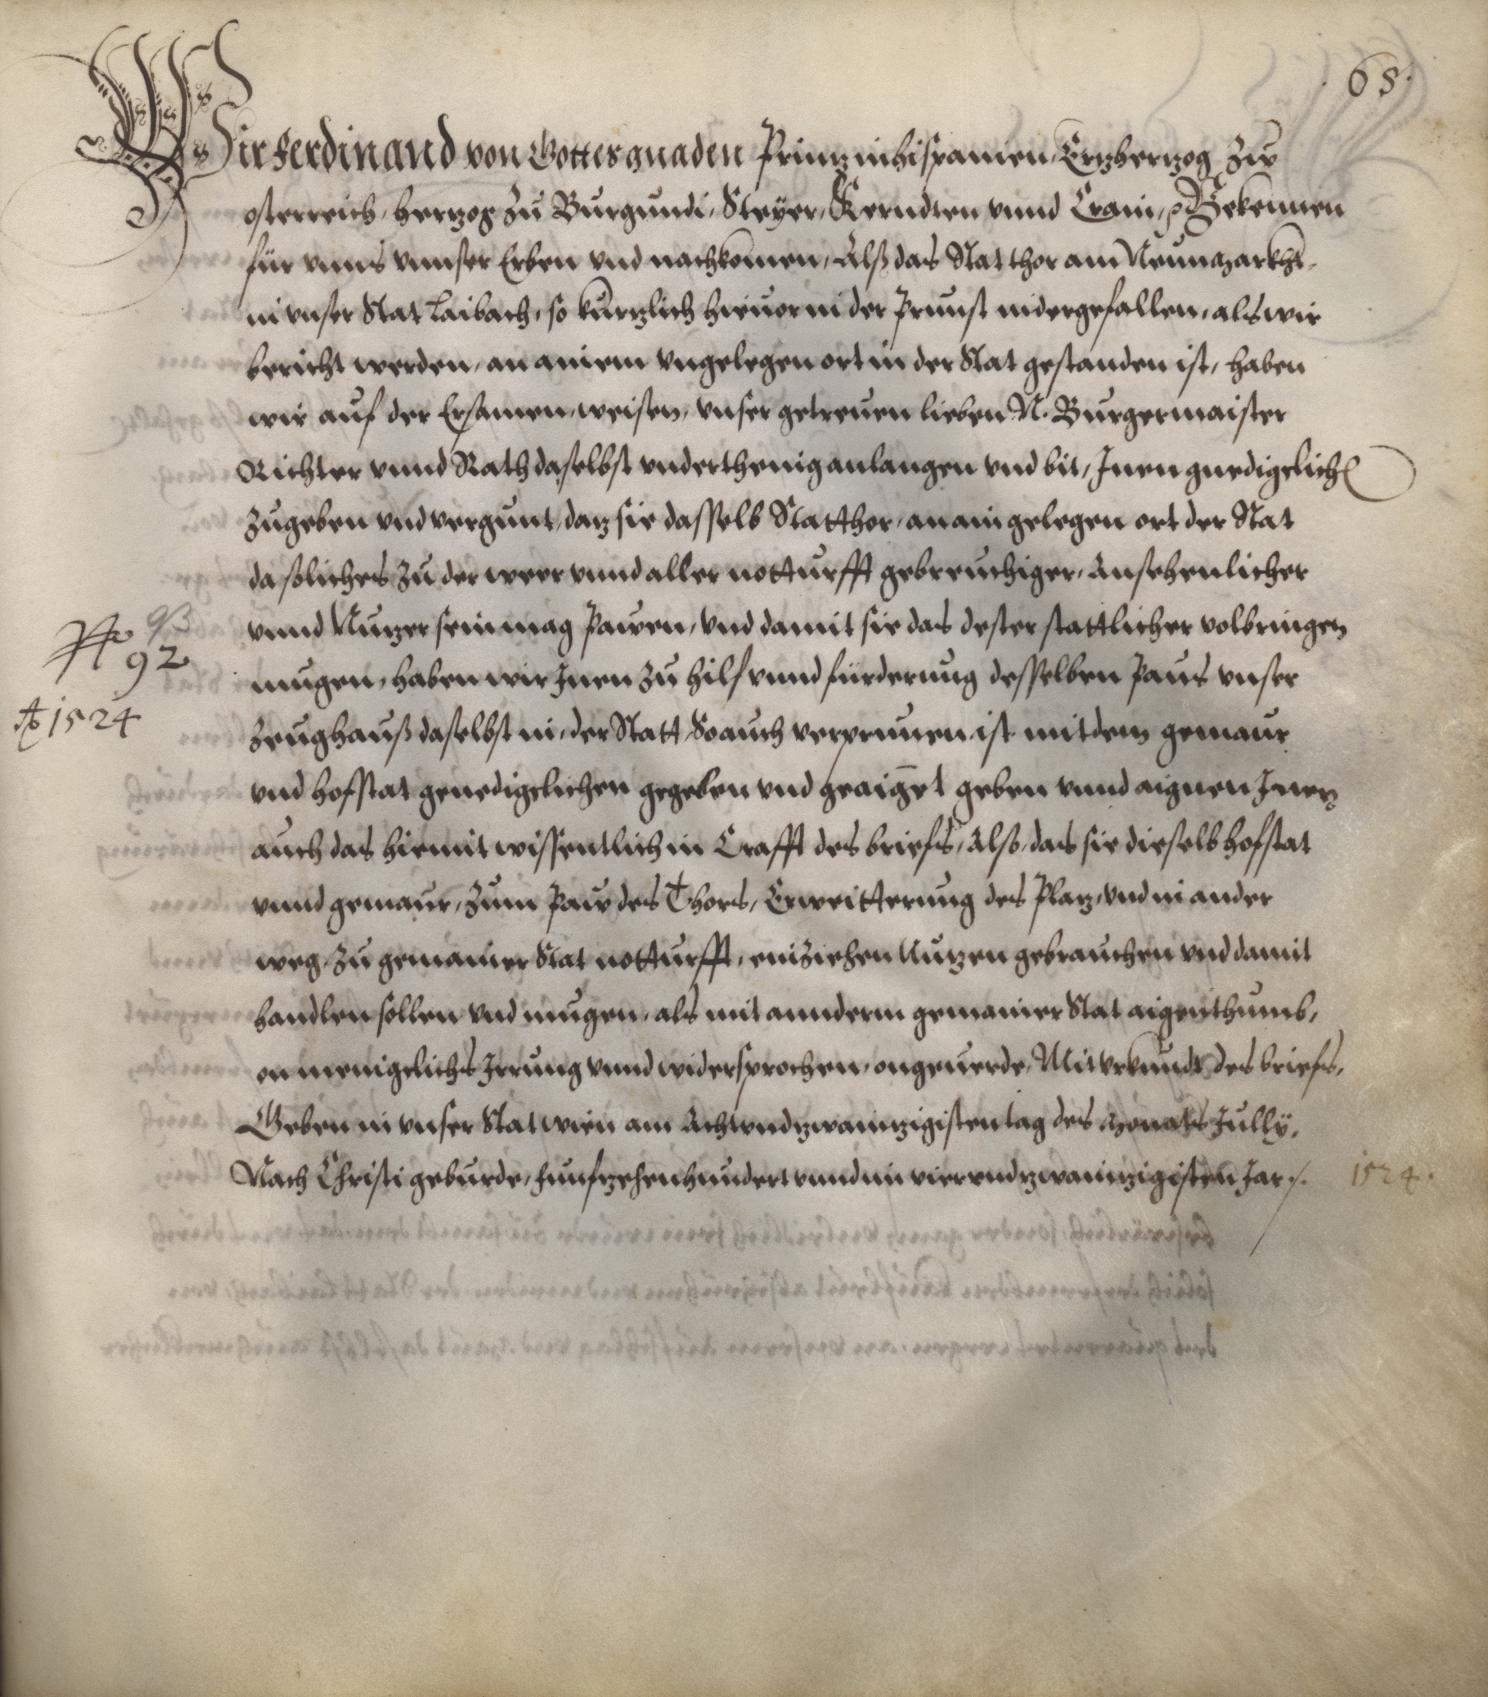 68.
Wir Ferdinand von Gottes gnaden Printz in hispanien, Ertzhertzog zw
osterreich, hertzog zu Burgundi, Steyer, Kerndten vnnd Crain, Bekennen
für vnns vnnser Erben vnd nachkomen, Alß das Stat thor am Neumarkht
in vnser Stat Laibach, so kurtzlich hieuor in der Prunst nidergefallen, als wir
bericht werden, an ainem vngelegen ort in der Stat gestanden ist, haben
wir auf der Ersamen, weisen, vnser getreuen lieben N. Burgermaister
Richter vnnd Rath daselbst vnderthenig anlangen vnd bit, Inen gnedigelich
zugeben vnd vergunt, daz sie dasselb Statthor, an ain gelegen ort der Stat
da soliches zu der weer vnnd aller notturfft gebreuchiger, Ansehenlicher
vnnd Nutzer sein mag Pawen, vnd damit sie das dester stattlicher volbringen
No 93
92
mugen, haben wir Inen zu hilf vnnd fürderung desselben Paus vnser
Ao 1524
Zeughauß daselbst in der Statt, So auch verprunen ist mit dem gemaur
vnd hofstat genedigelichen gegeben vnd geaignet geben vnnd aignen Inen
auch das hiemit wissentlich in Crafft des briefs, Also, das sie dieselb hofstat
vnnd gemaur, zum Paw des Thors, Erweitterung des Platz, vnd in ander
weg, zu gemainer Stat notturfft, einziehen Nutzen gebrauchen vnd damit
handlen sollen vnd mugen, als mit annderm gemainer Stat aigenthumb,
on menigelichs Irrung vnnd widersprochen, ongeuerde, Mit vrkundt des briefs,
Geben in vnser Stat wien am Achtvndzwaintzigisten tag des Monats Jully,
Nach Christi geburde, funftzehenhundert vnnd im viervndzwaintzigisten Jar. 1524.